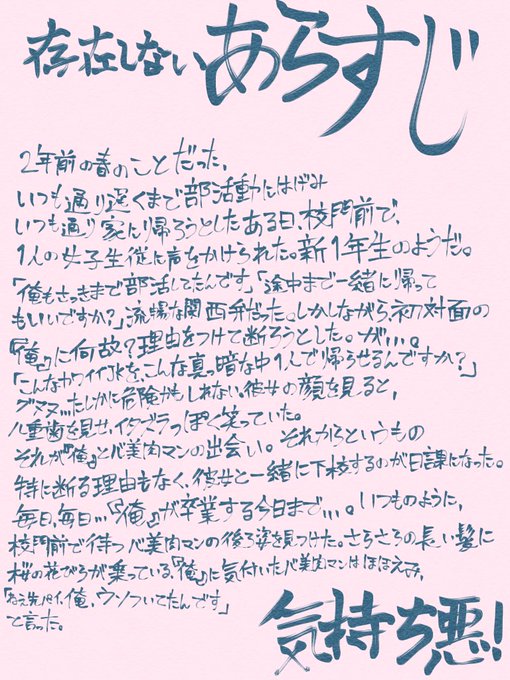 存在しないあらすじ
2年前の春のことだった、
いつも通り遅くまで部活動にはげみ
いつも通り家に帰ろうとしたある日、校門前で、
1人の女子生徒に声をかけられた。新1年生のようだ。
「俺もさっきまで部活してたんです」「途中まで一緒に帰って
もいいですか?」流暢な関西弁だった。しかしながら、初対面の
『俺』に何故?理由をつけて断ろうとした。が…。
「こんなカワイイJKを、こんな真っ暗な中1人で帰らせるんですか?」
グヌヌ…たしかに危険かもしれない。彼女の顔を見ると、
八重歯を見せ、イタズラっぽく笑っていた。
それが『俺』とバ美肉マンの出会い。それからというもの
特に断る理由もなく、彼女と一緒に下校するのが日課になった。
毎日、毎日…『俺』が卒業する今日まで…。いつものように、
校門前で待つバ美肉マンの後ろ姿を見つけた。さらさらの長い髪に
桜の花びらが乗っている。『俺』に気付いたバ美肉マンはほほえみ、
「ねえ先パイ、俺、ウソついてたんです」
と言った。
気持ち悪!